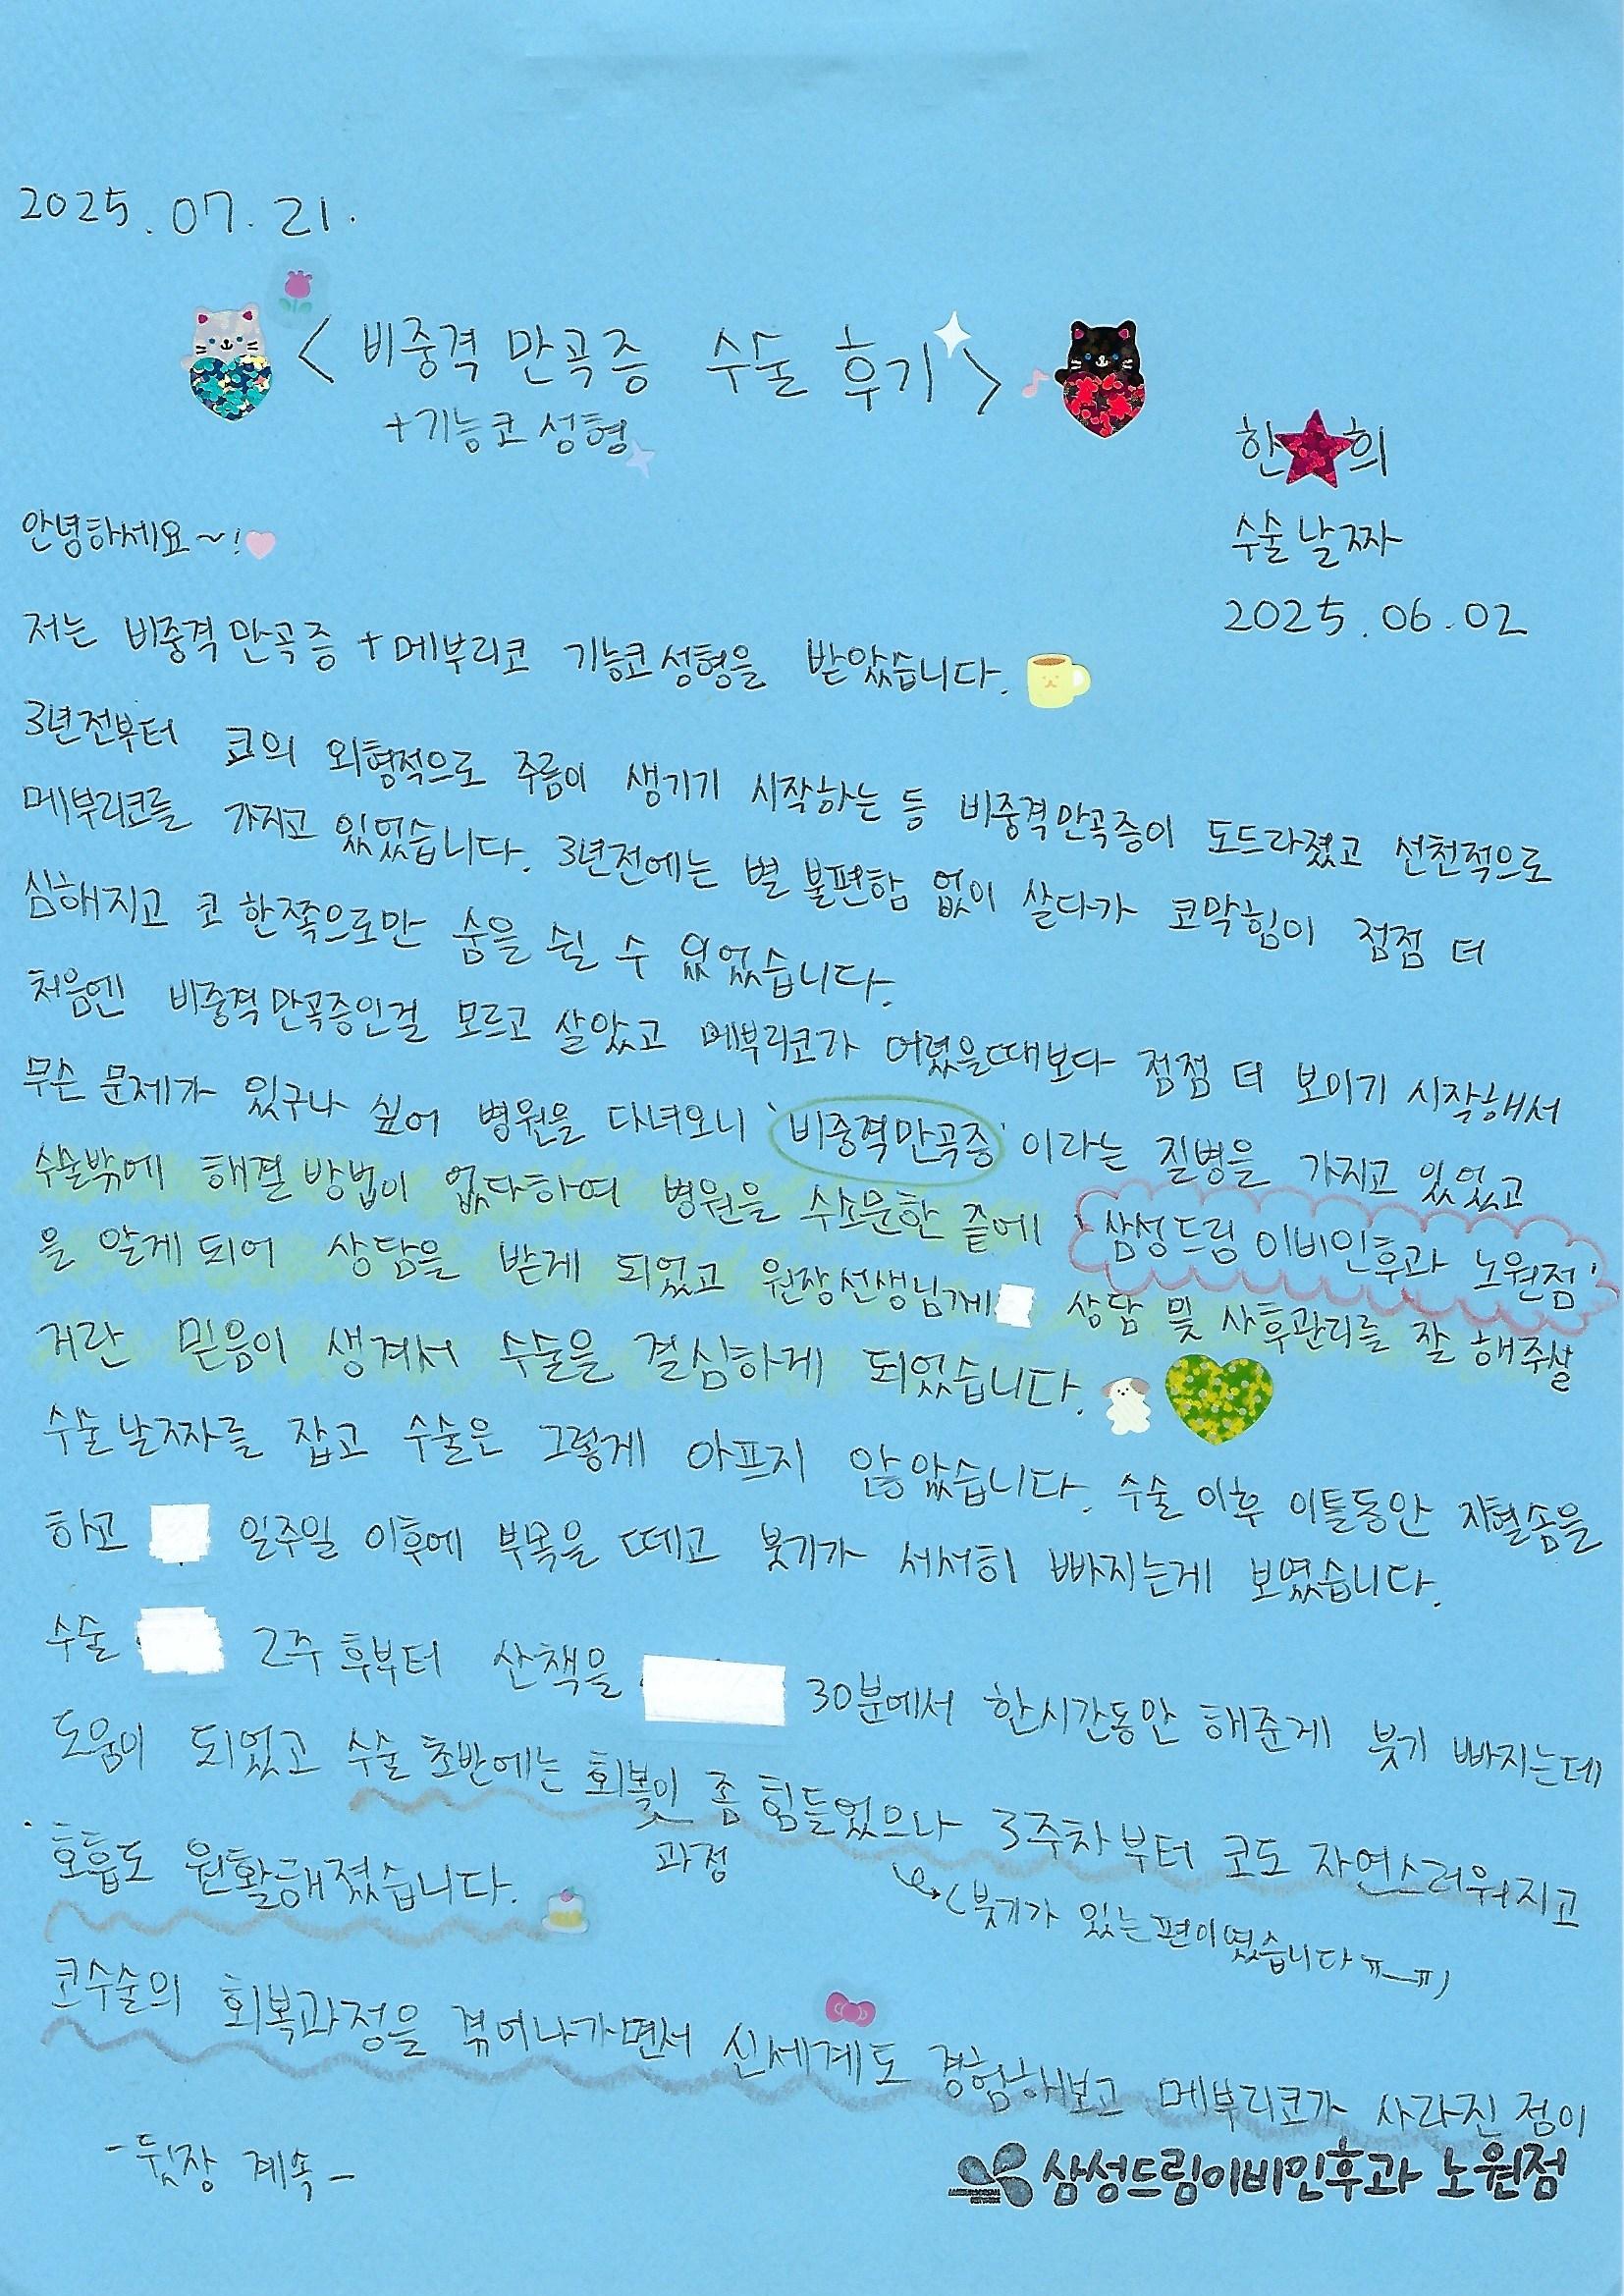 2025.07.21.
<비중격 만곡증 수술 후기>
+기능코 성형
한 희
수술 날짜
2025.06.02
안녕하세요~!
저는 비중격 만곡증 + 메부리코 기능코 성형을 받았습니다.
3년전부터 코의 외형적으로 주름이 생기기 시작하는 등 비중격만곡증이 도드라졌고 선천적으로
메부리코를 가지고 있었습니다. 3년전에는 별 불편함 없이 살다가 코막힘이 점점 더
심해지고 코 한쪽으로만 숨을 쉴 수 있었습니다.
처음엔 비중격만곡증인걸 모르고 살았고 메부리코가 어렸을때보다 점점 더 보이기 시작해서
무슨 문제가 있구나 싶어 병원을 다녀오니 '비중격만곡증' 이라는 질병을 가지고 있었고
수술밖에 해결 방법이 없다하여 병원을 수소문한 끝에 '삼성드림 이비인후과 노원점'
을 알게 되어 상담을 받게 되었고 원장선생님께 상담 및 사후관리를 잘 해주실
거란 믿음이 생겨서 수술을 결심하게 되었습니다.
수술날짜를 잡고 수술은 그렇게 아프지 않았습니다. 수술 이후 이틀동안 지혈솜을
하고 일주일 이후에 부목을 떼고 붓기가 서서히 빠지는게 보였습니다.
수술 2주 후부터 산책을 30분에서 한시간동안 해준게 붓기 빠지는데
도움이 되었고 수술 초반에는 회복이 좀 힘들었으나 3주차부터 코도 자연스러워지고
과정
(붓기가 있는편이였습니다ㅠ_ㅠ)
호흡도 원활해졌습니다.
코수술의 회복과정을 겪어나가면서 신세계도 경험해보고 메부리코가 사라진 점이
-뒷장 계속-
삼성드림이비인후과 노원점